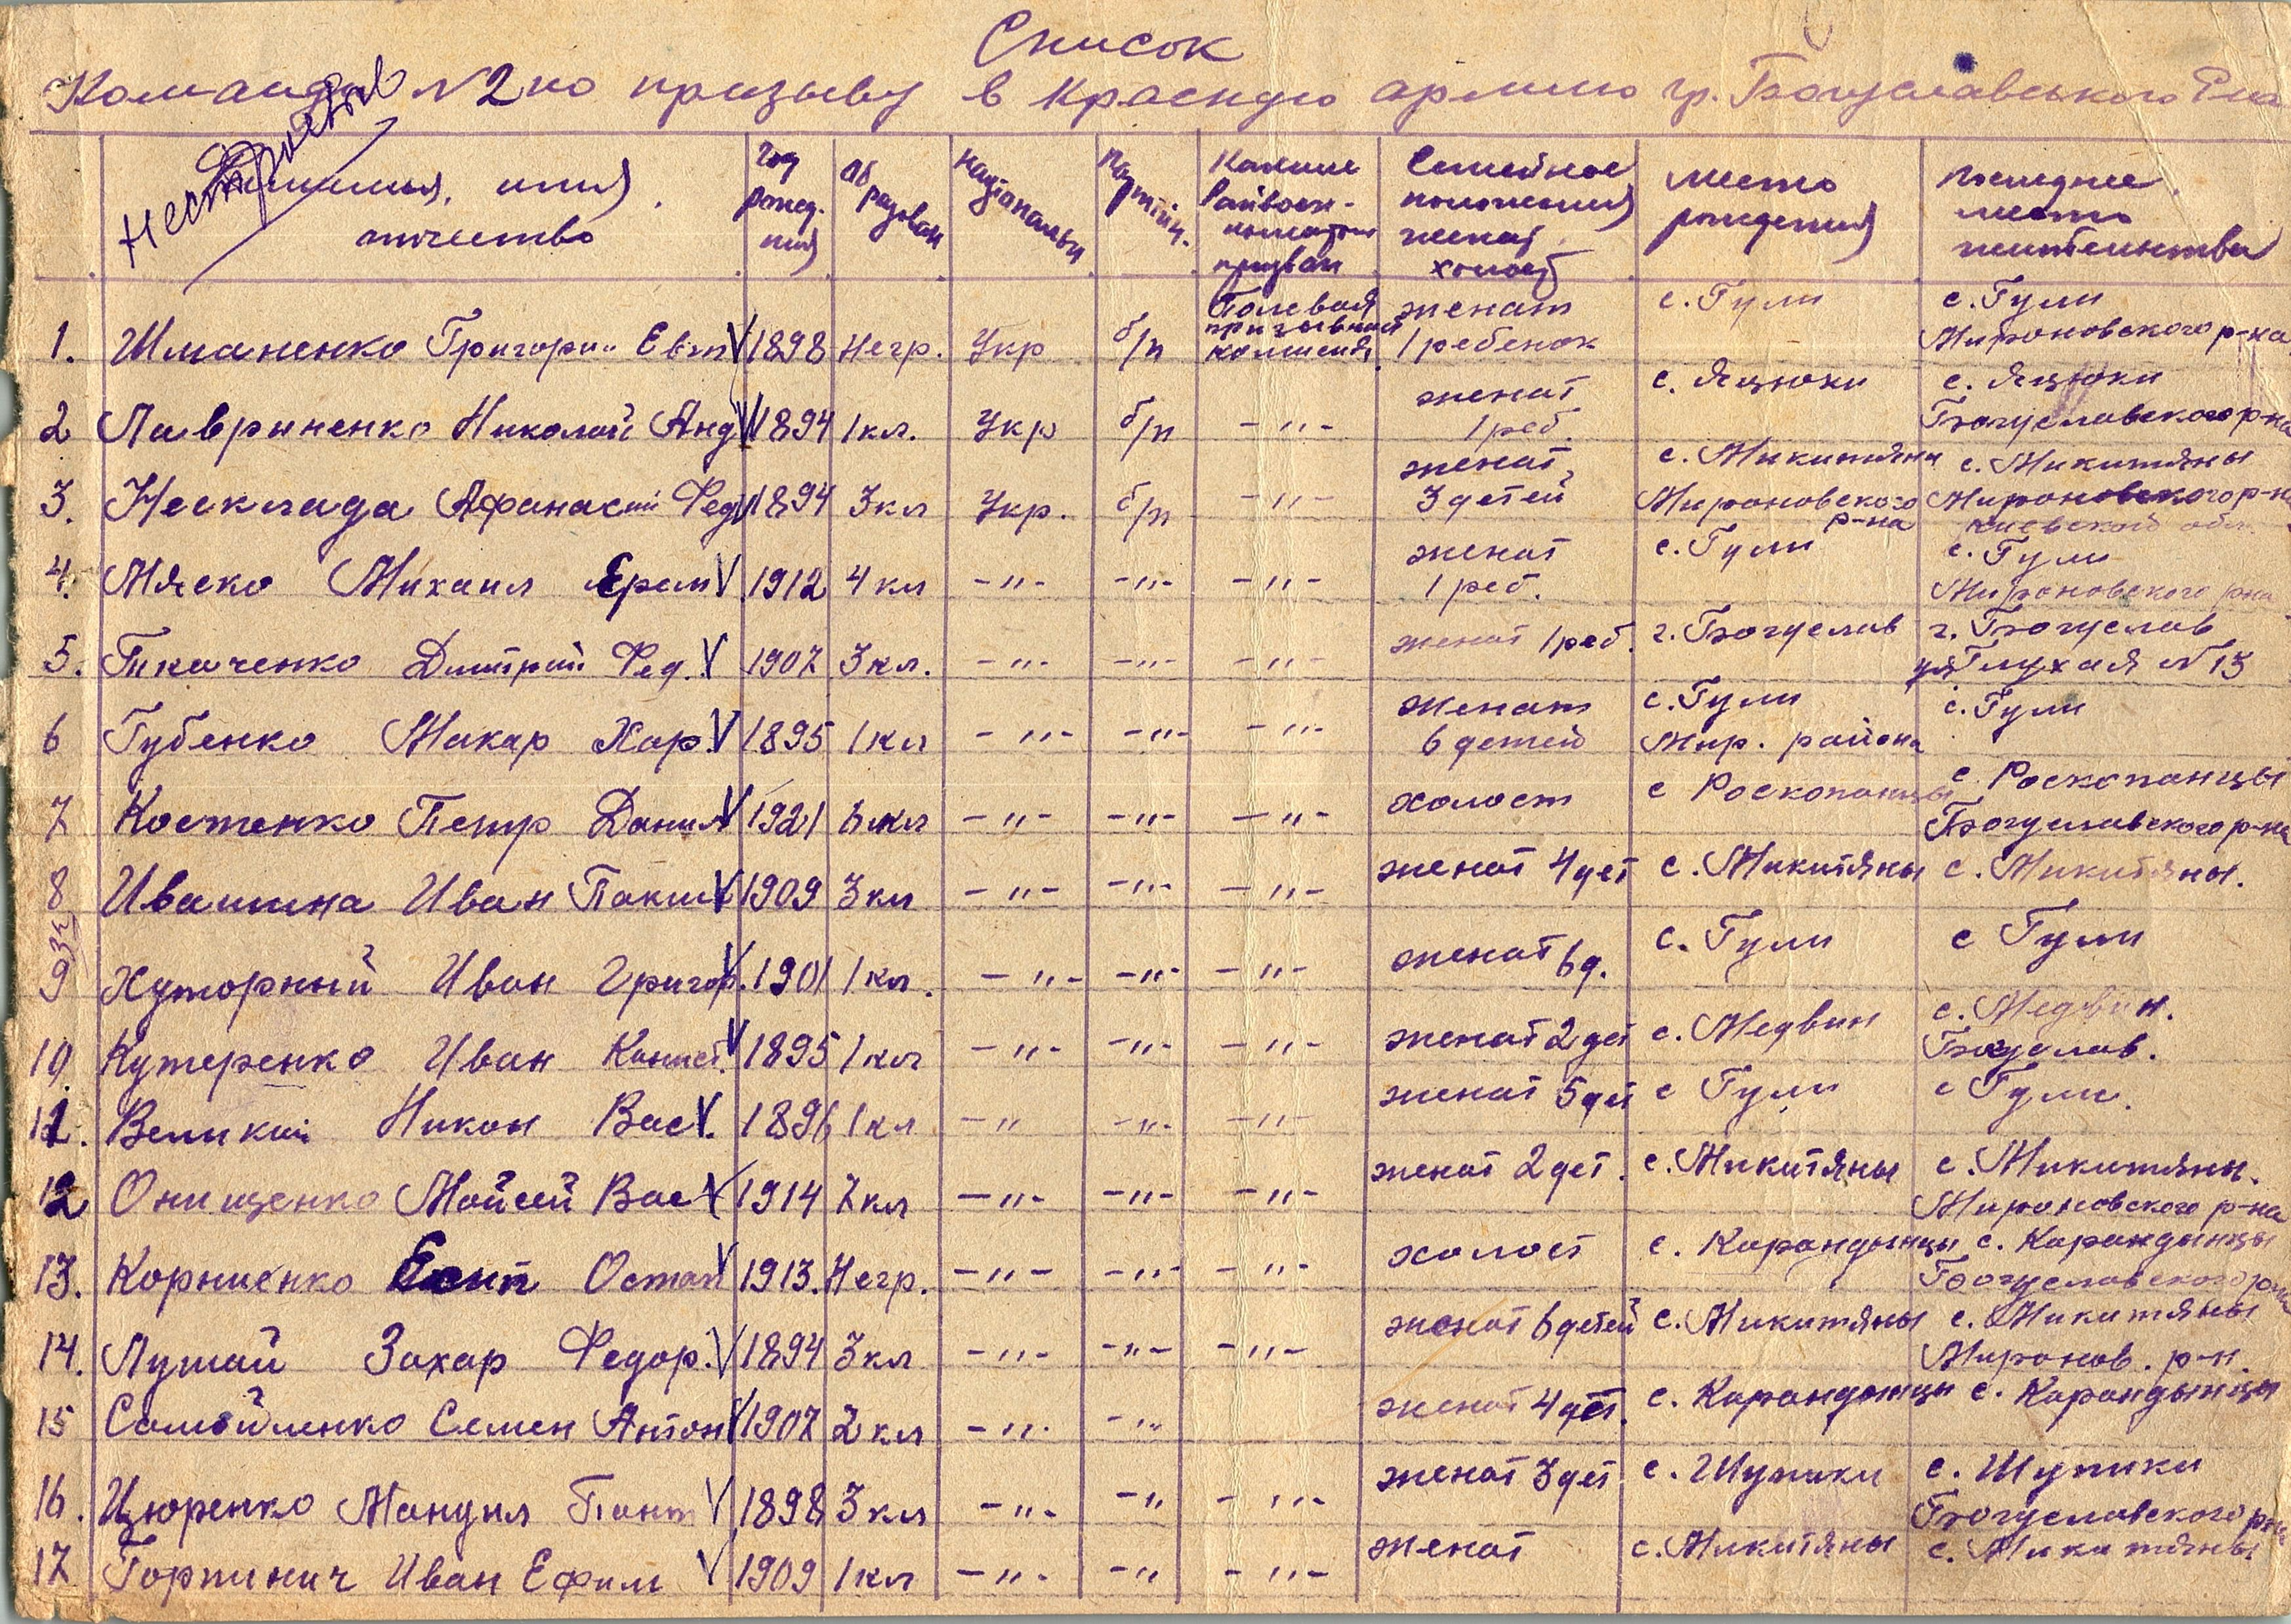 Список
Команды №2 по призыву в Красную армию гр. Богуславського
Нестроевые
Фамилия, имя, отчество
Год рожд. ния
Об разован
Націонольн
Партийн.
Каким Райвоен- коматом призван
Семейное положения женат, холост
Место рождения
Последнее место жительства
1. Шманенко Григории Евт V 1898 Негр. Укр б/п Полевая призывная комисия женат 1 ребенок с. Гули с. Гули Мироновского р-на
2 Лавриненко Николай Анд V 1894 1 кл. Укр б/п -"- женат 1 реб. с. Яцюки с. Яцюки Богуславского р-на
3. Несклада Афанасий Фед V 1894 3 кл Укр. б/п -"- женат, 3 детей с. Микитяны Мироновского р-на с. Микитяны Мироновского р-н Киевской обл.
4. Мяско Михаил Ерем V 1912 4 кл -"- -"- -"- женат 1 реб. с. Гули с. Гули Мироновского рна
5. Ткаченко Дмитрий Фед. V 1907 3 кл. -"- -"- -"- женат 1 реб. г. Богуслав г. Богуслав ул Глухая №13
6 Губенко Макар Хар. V 1895 1 кл -"- -"- -"- женат 6 детей с. Гули Мир. района с. Гули
7 Костенко Петр Данил V 1921 6 кл -"- -"- -"- холост с Роскопанцы с. Роскопанцы Богуславского р-на
8 Ивашина Иван V 1909 3 кл -"- -"- -"- женат 4 дет с. Микитяны с. Микитяны.
9 Хуторный Иван Григор V. 1901 1 кл. -"- -"- -"- женат 6 д. с. Гули с Гули
10 Кутеренко Иван V 1895 1 кл -"- -"- -"- женат 2 дет с. Медвин с. Медвин. Богуслав.
11. Великий Никон Вас V. 1896 1 кл -" -"- -"- женат 5 дет с Гули с Гули.
12 Онищенко Мойсей Вас V 1914 7 кл -"- -"- -"- женат 2 дет. с. Микитяны с. Микитяны. Мироновского р-на
13. Корниенко Есип Остап V 1913. Негр. -"- -"- -"- холост с. Карандынцы с. Карандынцы Богуславского рна
14. Лутай Захар Федор. V 1894 3 кл -"- -"- -"- женат 6 детей с. Микитяны с. Микитяны Миронов. р-н.
15 Самойленко Семен Антон V 1907 2 кл -"- -"- женат 4 дет. с. Карандынцы с. Карандынцы
16. Цюренко Мануил Пант V 1898 3 кл -"- -" -"- женат 3 дет с. Шупики с. Шупики Богуславского рна
17 Горпинич Иван Ефим V 1909 1 кл -"- -" -"- женат с. Микитяны с. Микитяны